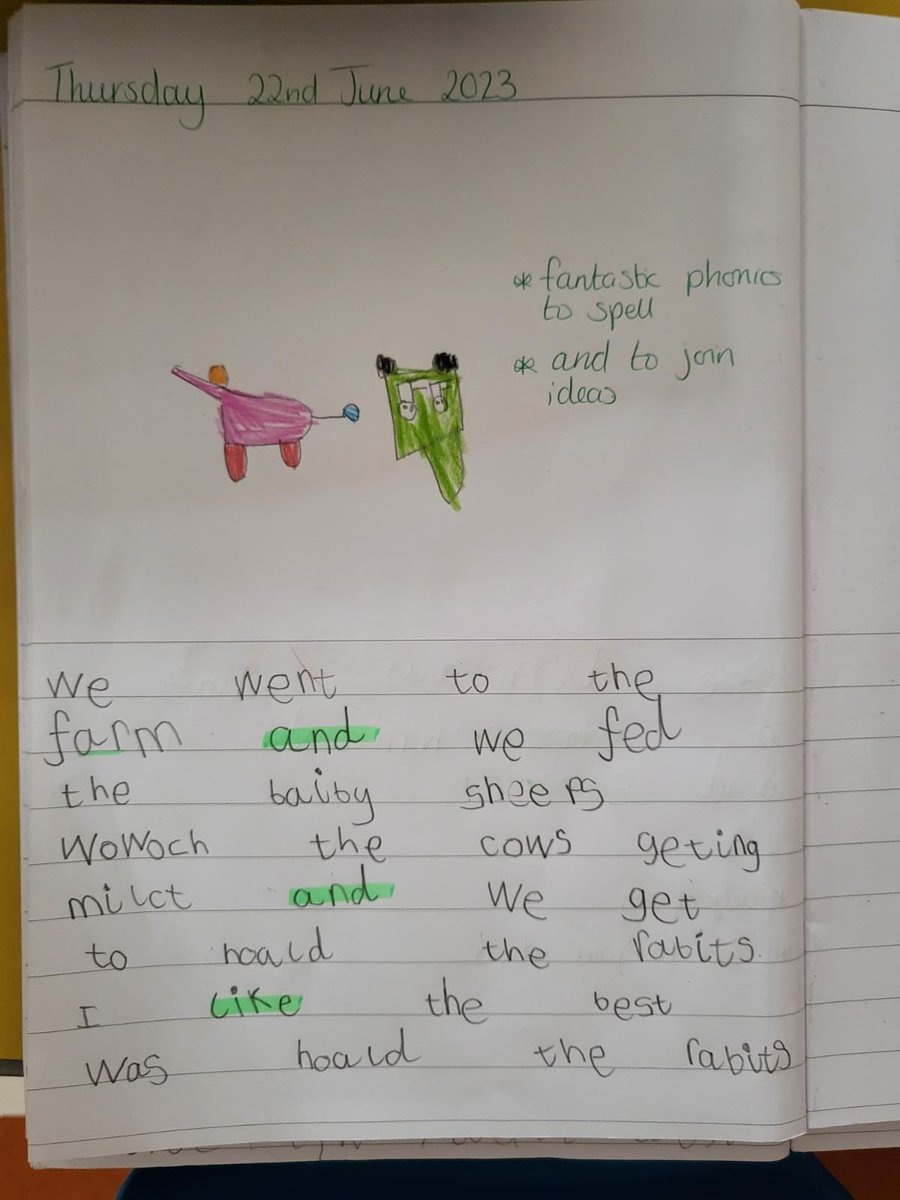 Thursday 22nd June 2023
* fantastic phonics
to spell
* and to join
ideas
We went to the
farm and we fed
the baiby sheeps
woWoch the cows geting
milct and We get
to hoald the rabits.
I like the best
was hoald the rabits